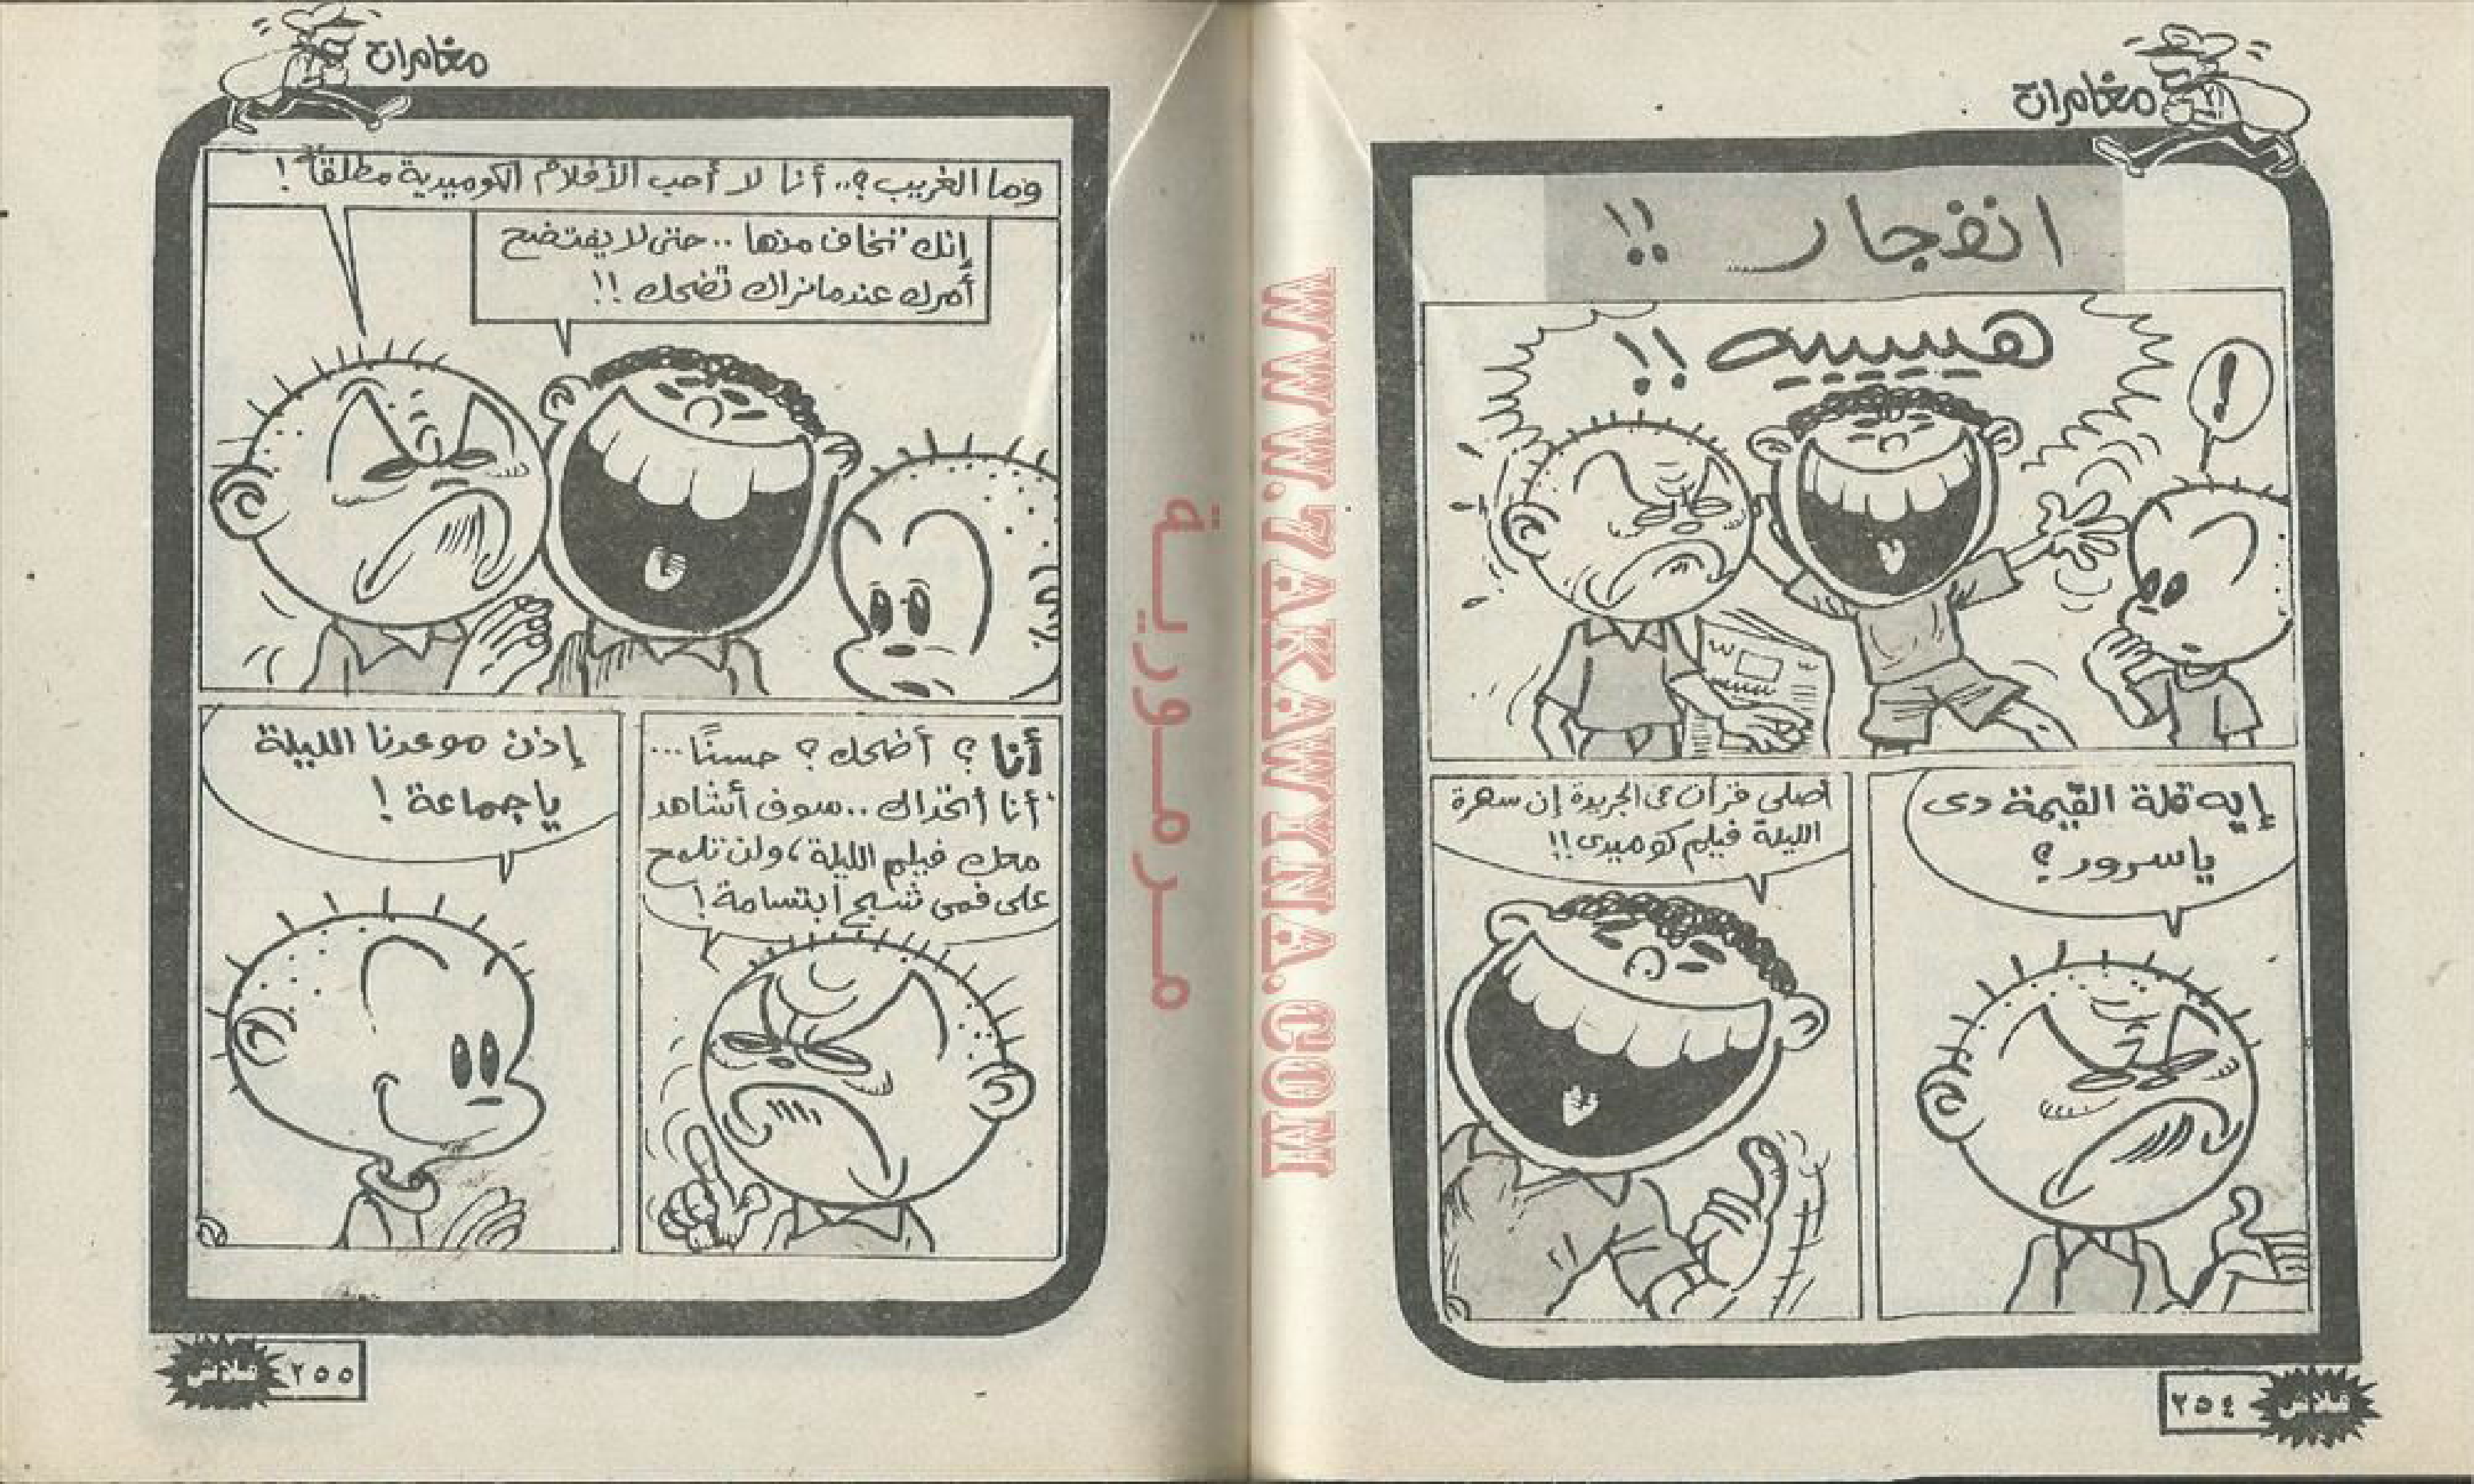 مغامرات
انفجار !!
هيييييه !!
!
إيه قلة القيمة دى
ياسرور ؟
أصلى قرأت فى الجريدة إن سهرة
الليلة فيلم كوميدى !!
٢٥٤
فلاش
WWW.7AKAWINA.COM
مرمورية
مغامرات
وما الغريب ؟.. أنا لا أحب الأفلام الكوميدية مطلقاً !
إنك تخاف منها .. حتى لا يفتضح
أمرك عندما نراك تضحك !!
أنا ؟ أضحك ؟ حسنًا ...
أنا أتحداك .. سوف أشاهد
معك فيلم الليلة ، ولن تلمح
على فمى شبح ابتسامة !
إذن موعدنا الليلة
ياجماعة !
فلاش
٢٥٥